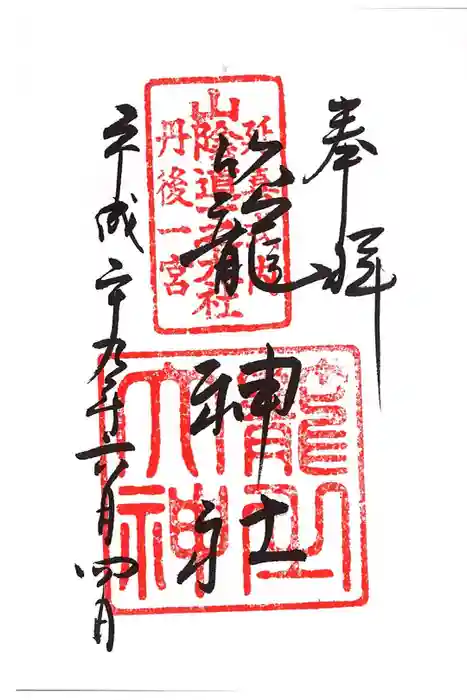 奉拝
延喜式内
山陰道一之大社
丹後一宮
籠神社
籠之大神
平成二十九年六月四日